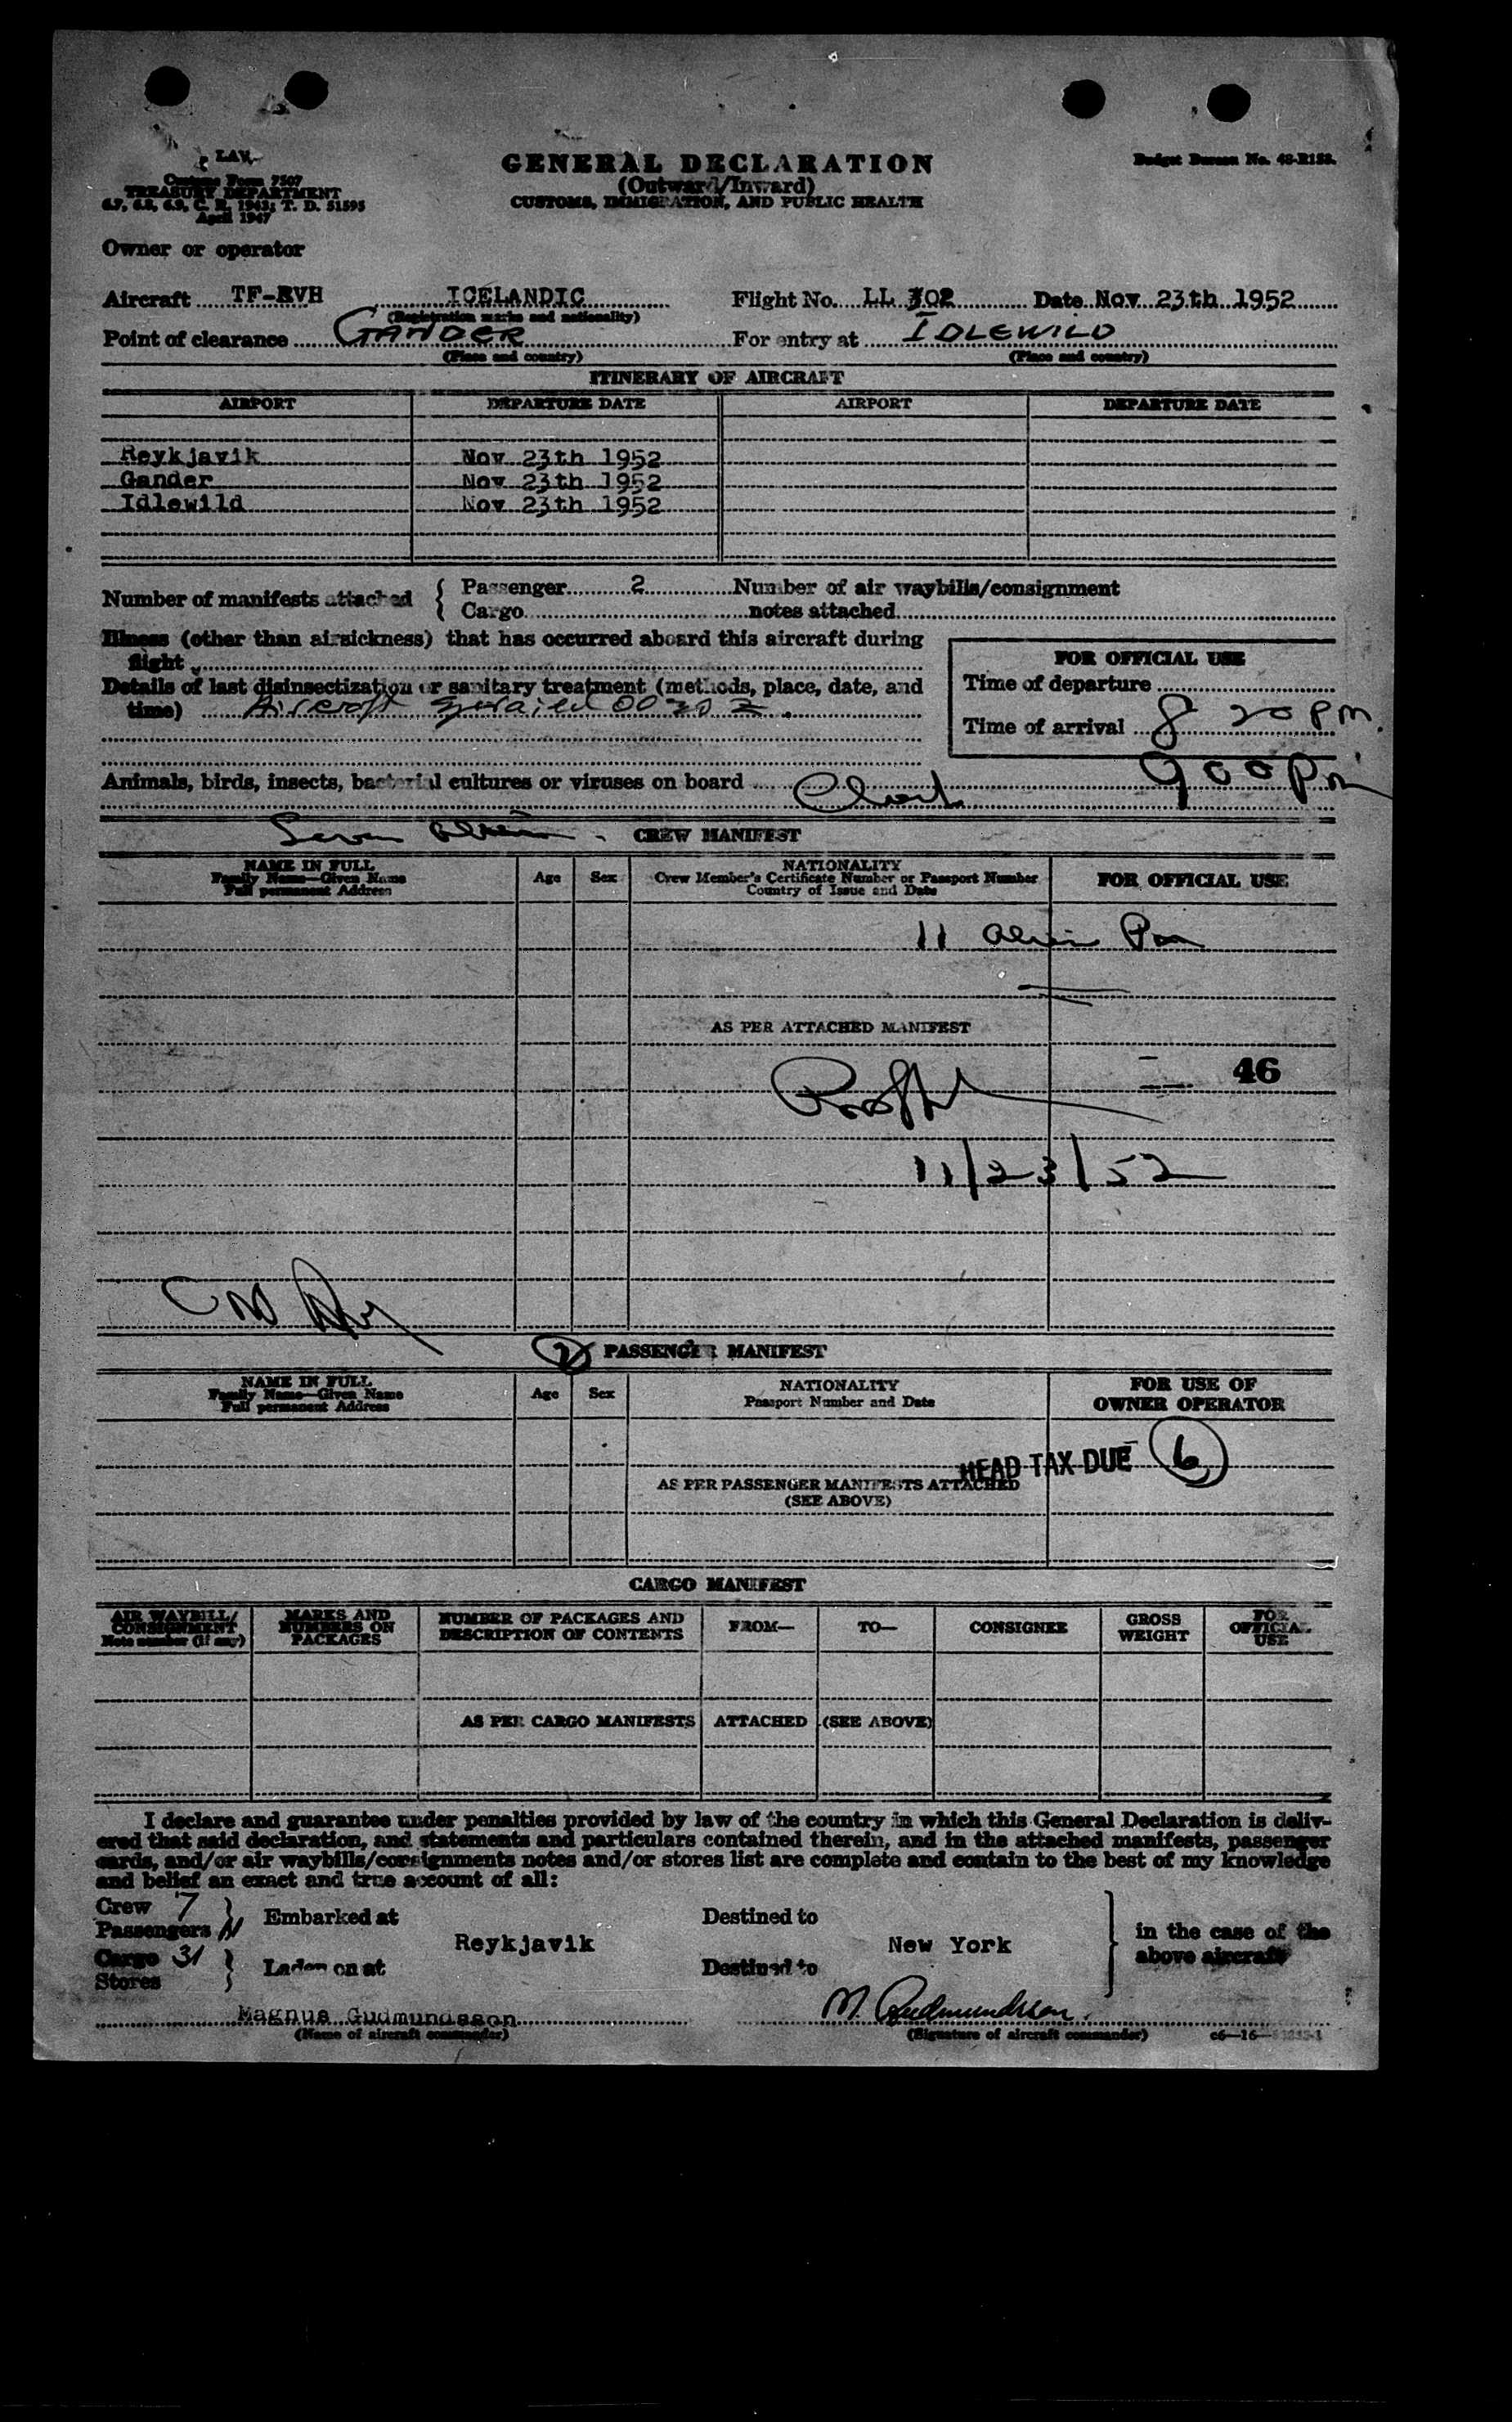 LAV
Customs Form 7507
TREASURY DEPARTMENT
6.7, 6.8, 6.9, C. R. 1943; T. D. 51595
April 1947
GENERAL DECLARATION
(Outward/Inward)
CUSTOMS, IMMIGRATION, AND PUBLIC HEALTH
Budget Bureau No. 48-R158.
Owner or operator
Aircraft TF-RVH ICELANDIC Flight No. LL 302 Date Nov 23th 1952
(Registration marks and nationality)
Point of clearance GANDER For entry at IDLEWILD
(Place and country) (Place and country)
ITINERARY OF AIRCRAFT
AIRPORT DEPARTURE DATE AIRPORT DEPARTURE DATE
Reykjavik Nov 23th 1952
Gander Nov 23th 1952
Idlewild Nov 23th 1952
Number of manifests attached { Passenger 2 Number of air waybills/consignment
Cargo notes attached
Illness (other than airsickness) that has occurred aboard this aircraft during
flight
FOR OFFICIAL USE
Details of last disinsectization or sanitary treatment (methods, place, date, and
time) Aircraft 0030 Z.
Time of departure
Time of arrival 8 20 PM.
900 Pm
Animals, birds, insects, bacterial cultures or viruses on board
Seven
CREW MANIFEST
NAME IN FULL
Family Name—Given Name
Full permanent Address
Age Sex
NATIONALITY
Crew Member's Certificate Number or Passport Number
Country of Issue and Date
FOR OFFICIAL USE
11
AS PER ATTACHED MANIFEST
46
11/23/52
2 PASSENGER MANIFEST
NAME IN FULL
Family Name—Given Name
Full permanent Address
Age Sex
NATIONALITY
Passport Number and Date
FOR USE OF
OWNER OPERATOR
HEAD TAX DUE 6
AS PER PASSENGER MANIFESTS ATTACHED
(SEE ABOVE)
CARGO MANIFEST
AIR WAYBILL/
CONSIGNMENT
Note number (if any)
MARKS AND
NUMBERS ON
PACKAGES
NUMBER OF PACKAGES AND
DESCRIPTION OF CONTENTS
FROM— TO— CONSIGNEE
GROSS
WEIGHT
FOR
OFFICIAL
USE
AS PER CARGO MANIFESTS ATTACHED (SEE ABOVE)
I declare and guarantee under penalties provided by law of the country in which this General Declaration is deliv-
ered that said declaration, and statements and particulars contained therein, and in the attached manifests, passenger
cards, and/or air waybills/consignments notes and/or stores list are complete and contain to the best of my knowledge
and belief an exact and true account of all:
Crew 7
Passengers 11
} Embarked at Destined to
Reykjavik New York
in the case of the
above aircraft
Cargo 31
Stores
} Laden on at Destined to
Magnus Gudmundsson M. Gudmundsson.
(Name of aircraft commander) (Signature of aircraft commander) c6—16—